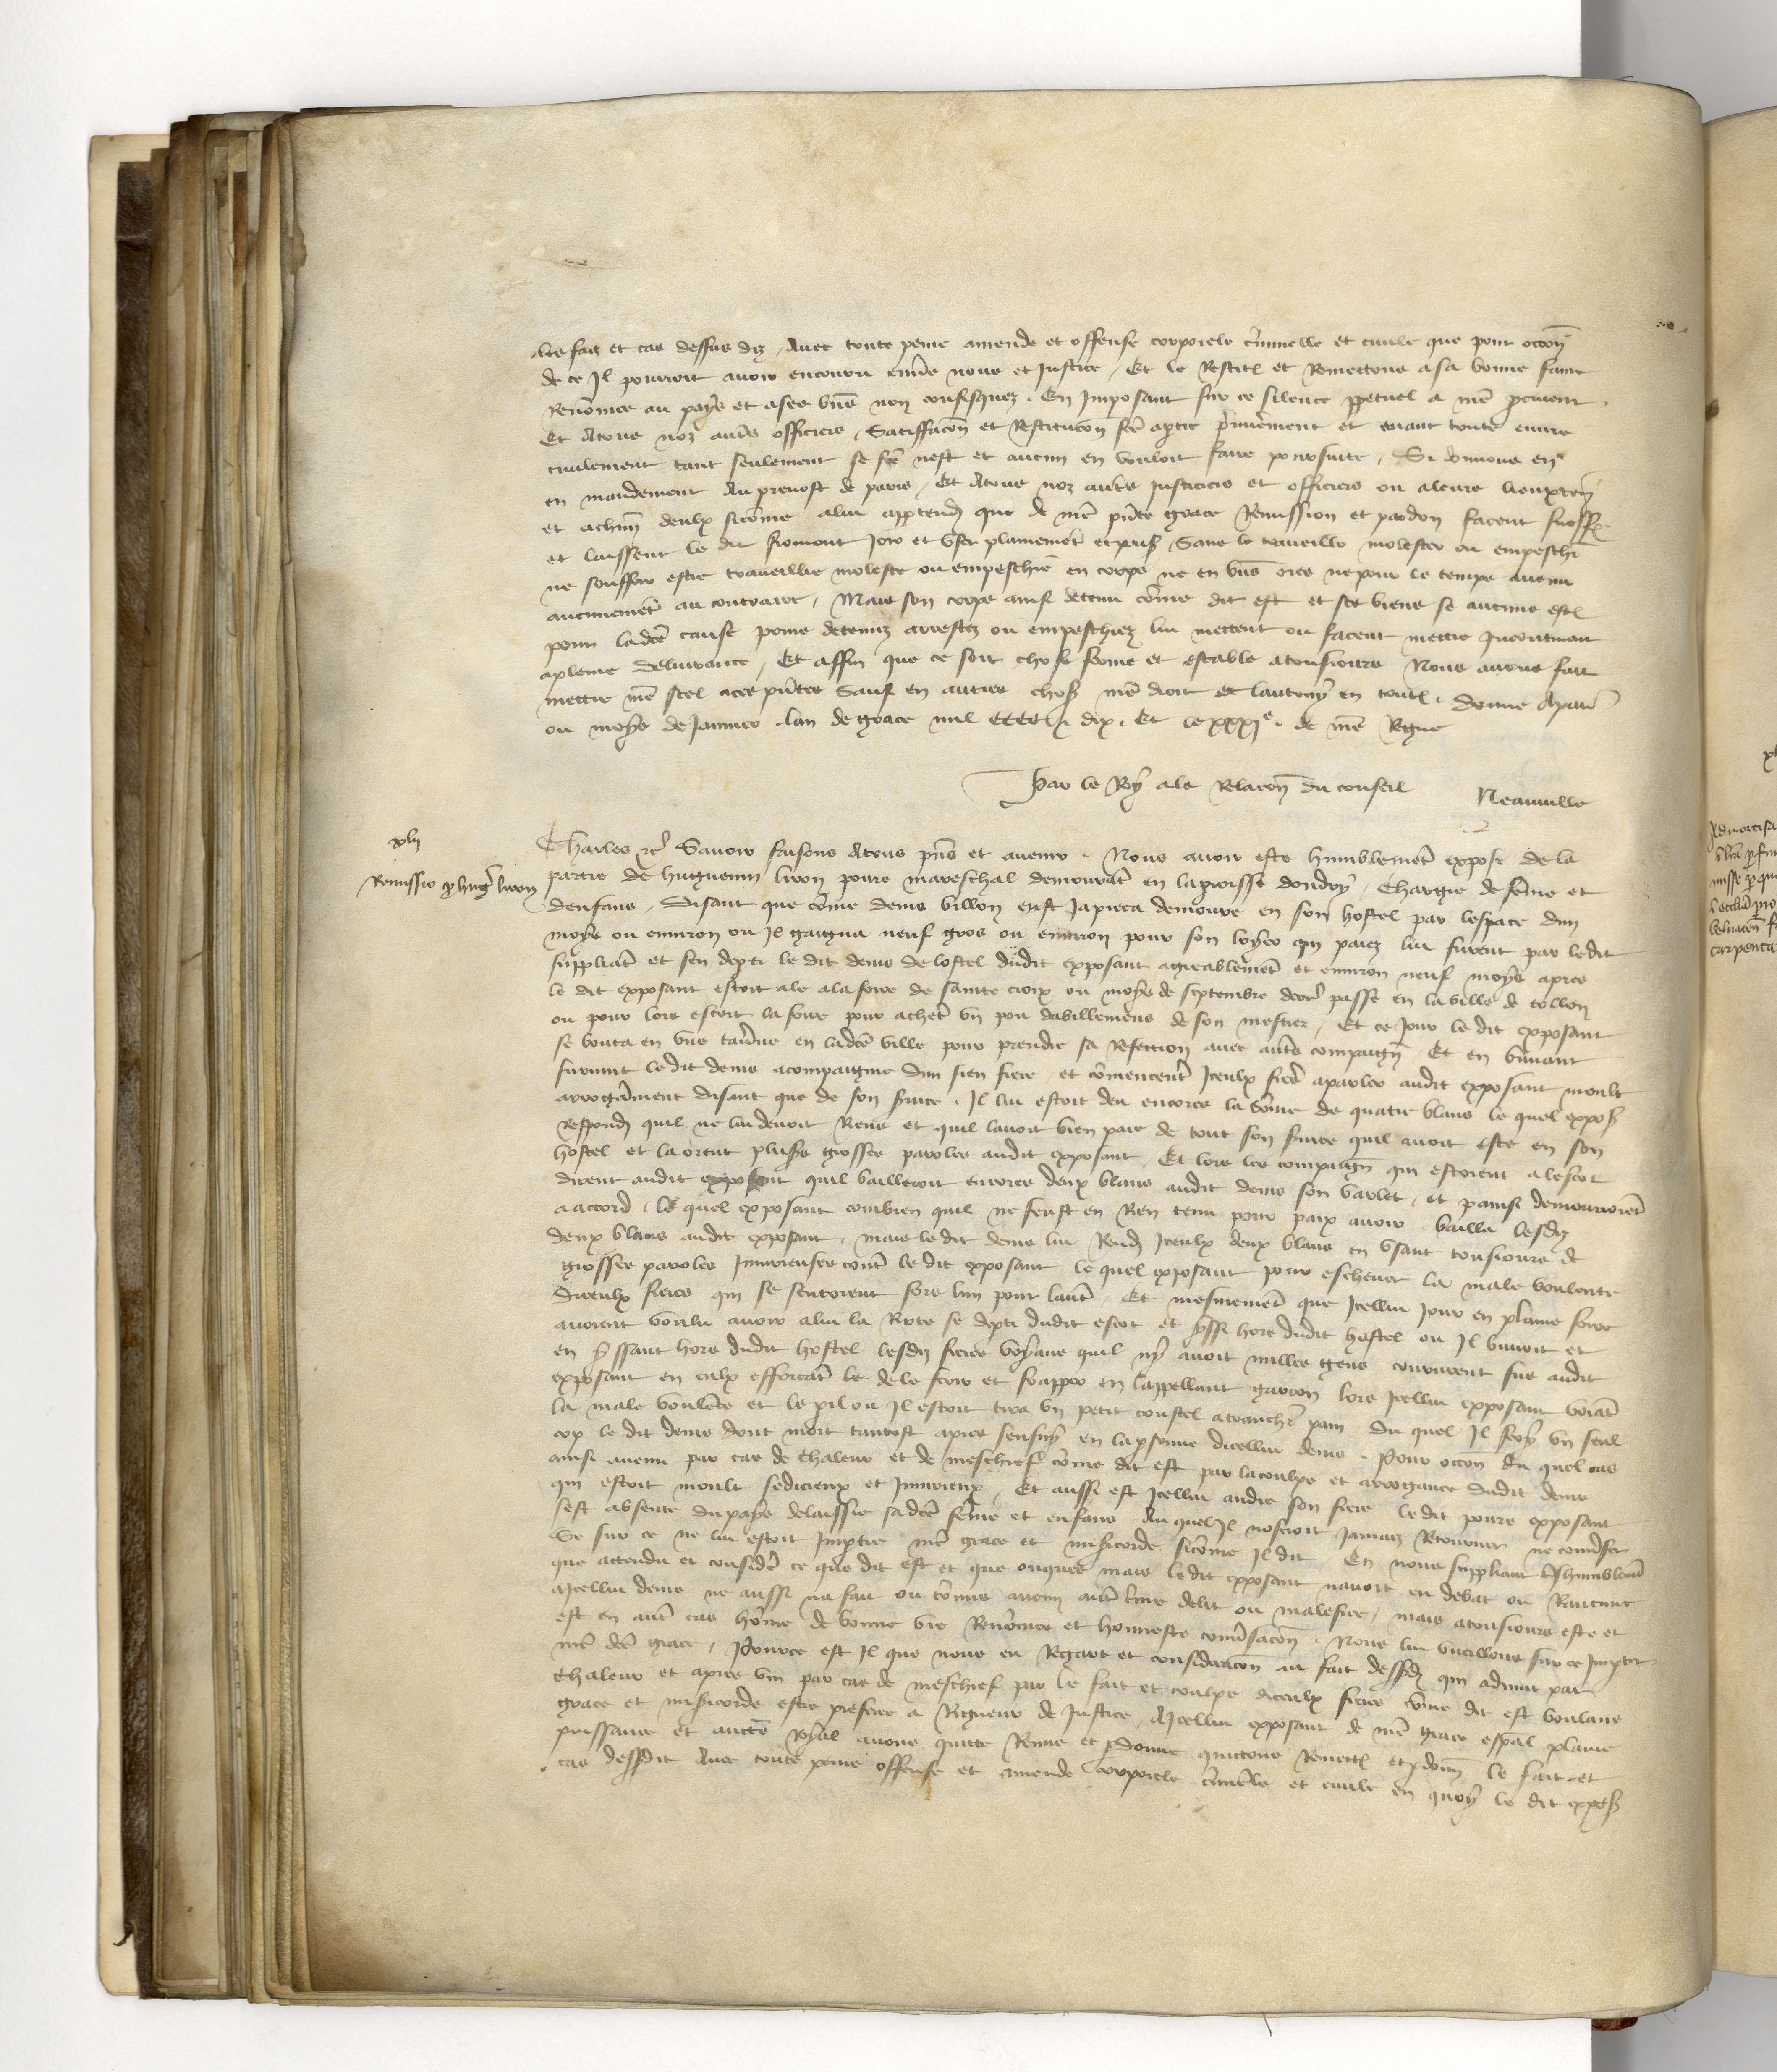 les faiz et cas dessus diz, Avec toute peine amende et offense corporele criminelle et civile que pour occon
de ce Il pourroit avoir encouru envers nous et Justice, Et le Restit et Remettons a sa bonne fame
Renomee au pays et a ses biens non confisquez. En Imposant sur ce silence ppetuel a nre procureur
Et Atous noz autres officiers, Satiffacon et Restitucon fce aptie premierement et avant toute euvre
civilement tant seulement se fce nest et aucun en vouloit faire poursuite, Si donnons en
en mandement Au prevost de paris, Et Atous noz autres justiciers et officiers ou a leurs lieuxten
et achun deulx sicomme alui apptendra que de nre pnte grace Remission et pardon facent sueffr
et laissent le dit fromont Joir et user plainement et paisib, Sans le traveillier molester ou empeschier
ne souffrir estre traveillie moleste ou empeschie en corps ne en biens ores ne pour le temps avenir
aucunement au contraire, Mais son corps ainsi detenu come dit est et ses biens se aucuns est
pour ladce cause prins detenuz arrestez ou empeschiez lui mettent ou facent mettre Incontinent
apleine delivrance, Et affin que ce soit chose ferme et estable atousiours Nous avons fait
mettre nre scel aces pntes Sauf en autres choses nre droit et lautruy en tout. Donne Aparis
ou moys de Janvier lan de grace mil CCCC. dix. Et le xxxje. de nre Regne
Par le Roy ala Relacon du conseil Neauville
xlij
Remissio pro hug liron
Charles etc Savoir faisons Atous pns et avenir. Nous avoir este humblement expose de la
partie de huguenin liron povre mareschal demourant en la paroisse dondry, Chargie de feme et
denfans, Disant que come denis billon eust Japieca demoure en son hostel par lespace dun
moys ou environ ou Il gaigna neuf gros ou environ pour son loyer qui paiez lui furent par ledit
suppliant et sen depti le dit denis de lostel dudit exposant agreablement et environ neuf moys apres
le dit exposant estoit ale ala foire de sainte croix ou moys de septembre derr passe en la ville de tollon
ou pour lors estoit la foire pour achet un pou dabillemens de son mestier, Et ce Jour le dit exposant
se bouta en une taverne en ladce ville pour prendre sa Refection avec autres compaign Et en buvant
survint ledit denis acompaignie dun sien frere, et comencerent Iceulx freres aparler audit exposant moult
arrogamment disant que de son service. Il lui estoit deu encores la somme de quatre blans le quel expos
Respondi quil ne lui devoit Riens et quil lavoit bien paie de tout son service quil avoit este en son
hostel et la orent plusrs grosses paroles audit exposant, Et lors les compaign qui estoient alescot
dirent audit exposant quil bailleroit encores deux blans audit denis son varlet, et parmi demourroient
a accord, le quel exposant combien quil ne feust en Rien tenu pour paix avoir bailla lesdiz
deux blans audit exposant, mais ledit denis lui Rendi Iceulx deux blans en usant tousiours de
grosses paroles Iniurieuses contre le dit exposant le quel exposant pour eschever la male voulente
diceulx freres qui se sentoient fors lun pour lautre, Et mesmement que Icellui Jour en plaine foire
avoient voulu avoir alui la Rote se depti dudit escot et yssi hors dudit hostel ou Il buvoit et
en yssant hors dudit hostel lesdiz freres voyans quil ny avoit nulles gens coururent sus audit
exposant en eulx efforcant le de le ferir et frapper en lappellant garcon lors Icellui exposant voiant
la male voulente et le peril ou Il estoit tira un petit coustel atranchier pain Du quel Il fery un seul
cop le dit denis dont mort tantost apres sensuy en la personne dicellui denis. Pour occon du quel cas
ainsi avenu par cas de chaleur et de meschief come dit est par lacoulpe et arrogance dudit denis
qui estoit moult sedicieux et Iniurieux, Et aussi est Icellui andre son frere le dit povre exposant
sest absente du pays delaissie sadce feme et enfans Au quel Il noseroit Jamaiz Retourner ne converser
Se sur ce ne lui estoit Impetre nre grace et misericorde sicomme Il dit, En nous suppliant tshumblement
que attendu et considere ce que dit est et que onques mais ledit exposant navoit eu debat ou Rancune
aicellui denis ne aussi na fait ou comis aucun autre crime delit ou malefice, mais atousiours este et
est en autre cas home de bonne vie Renomee et honneste conversacon. Nous lui vueillons sur ce Impetir
nre dce grace, Pource est Il que nous eu Regart et consideracon au fait dessusd qui advint par
chaleur et apres vin par cas de meschief par le fait et coulpe diceulx freres come dit est voulans
grace et misericorde estre preferee a Rigueur de Justice, Aicellui exposant de nre grace espal plaine
puissance et aucte Royal avons quitte Remis et pardonne quictons Remett et pdonn le fait et
cas dessusdit Avec toute peine offense et amende corporele criminele et civile en quoy le dit expos